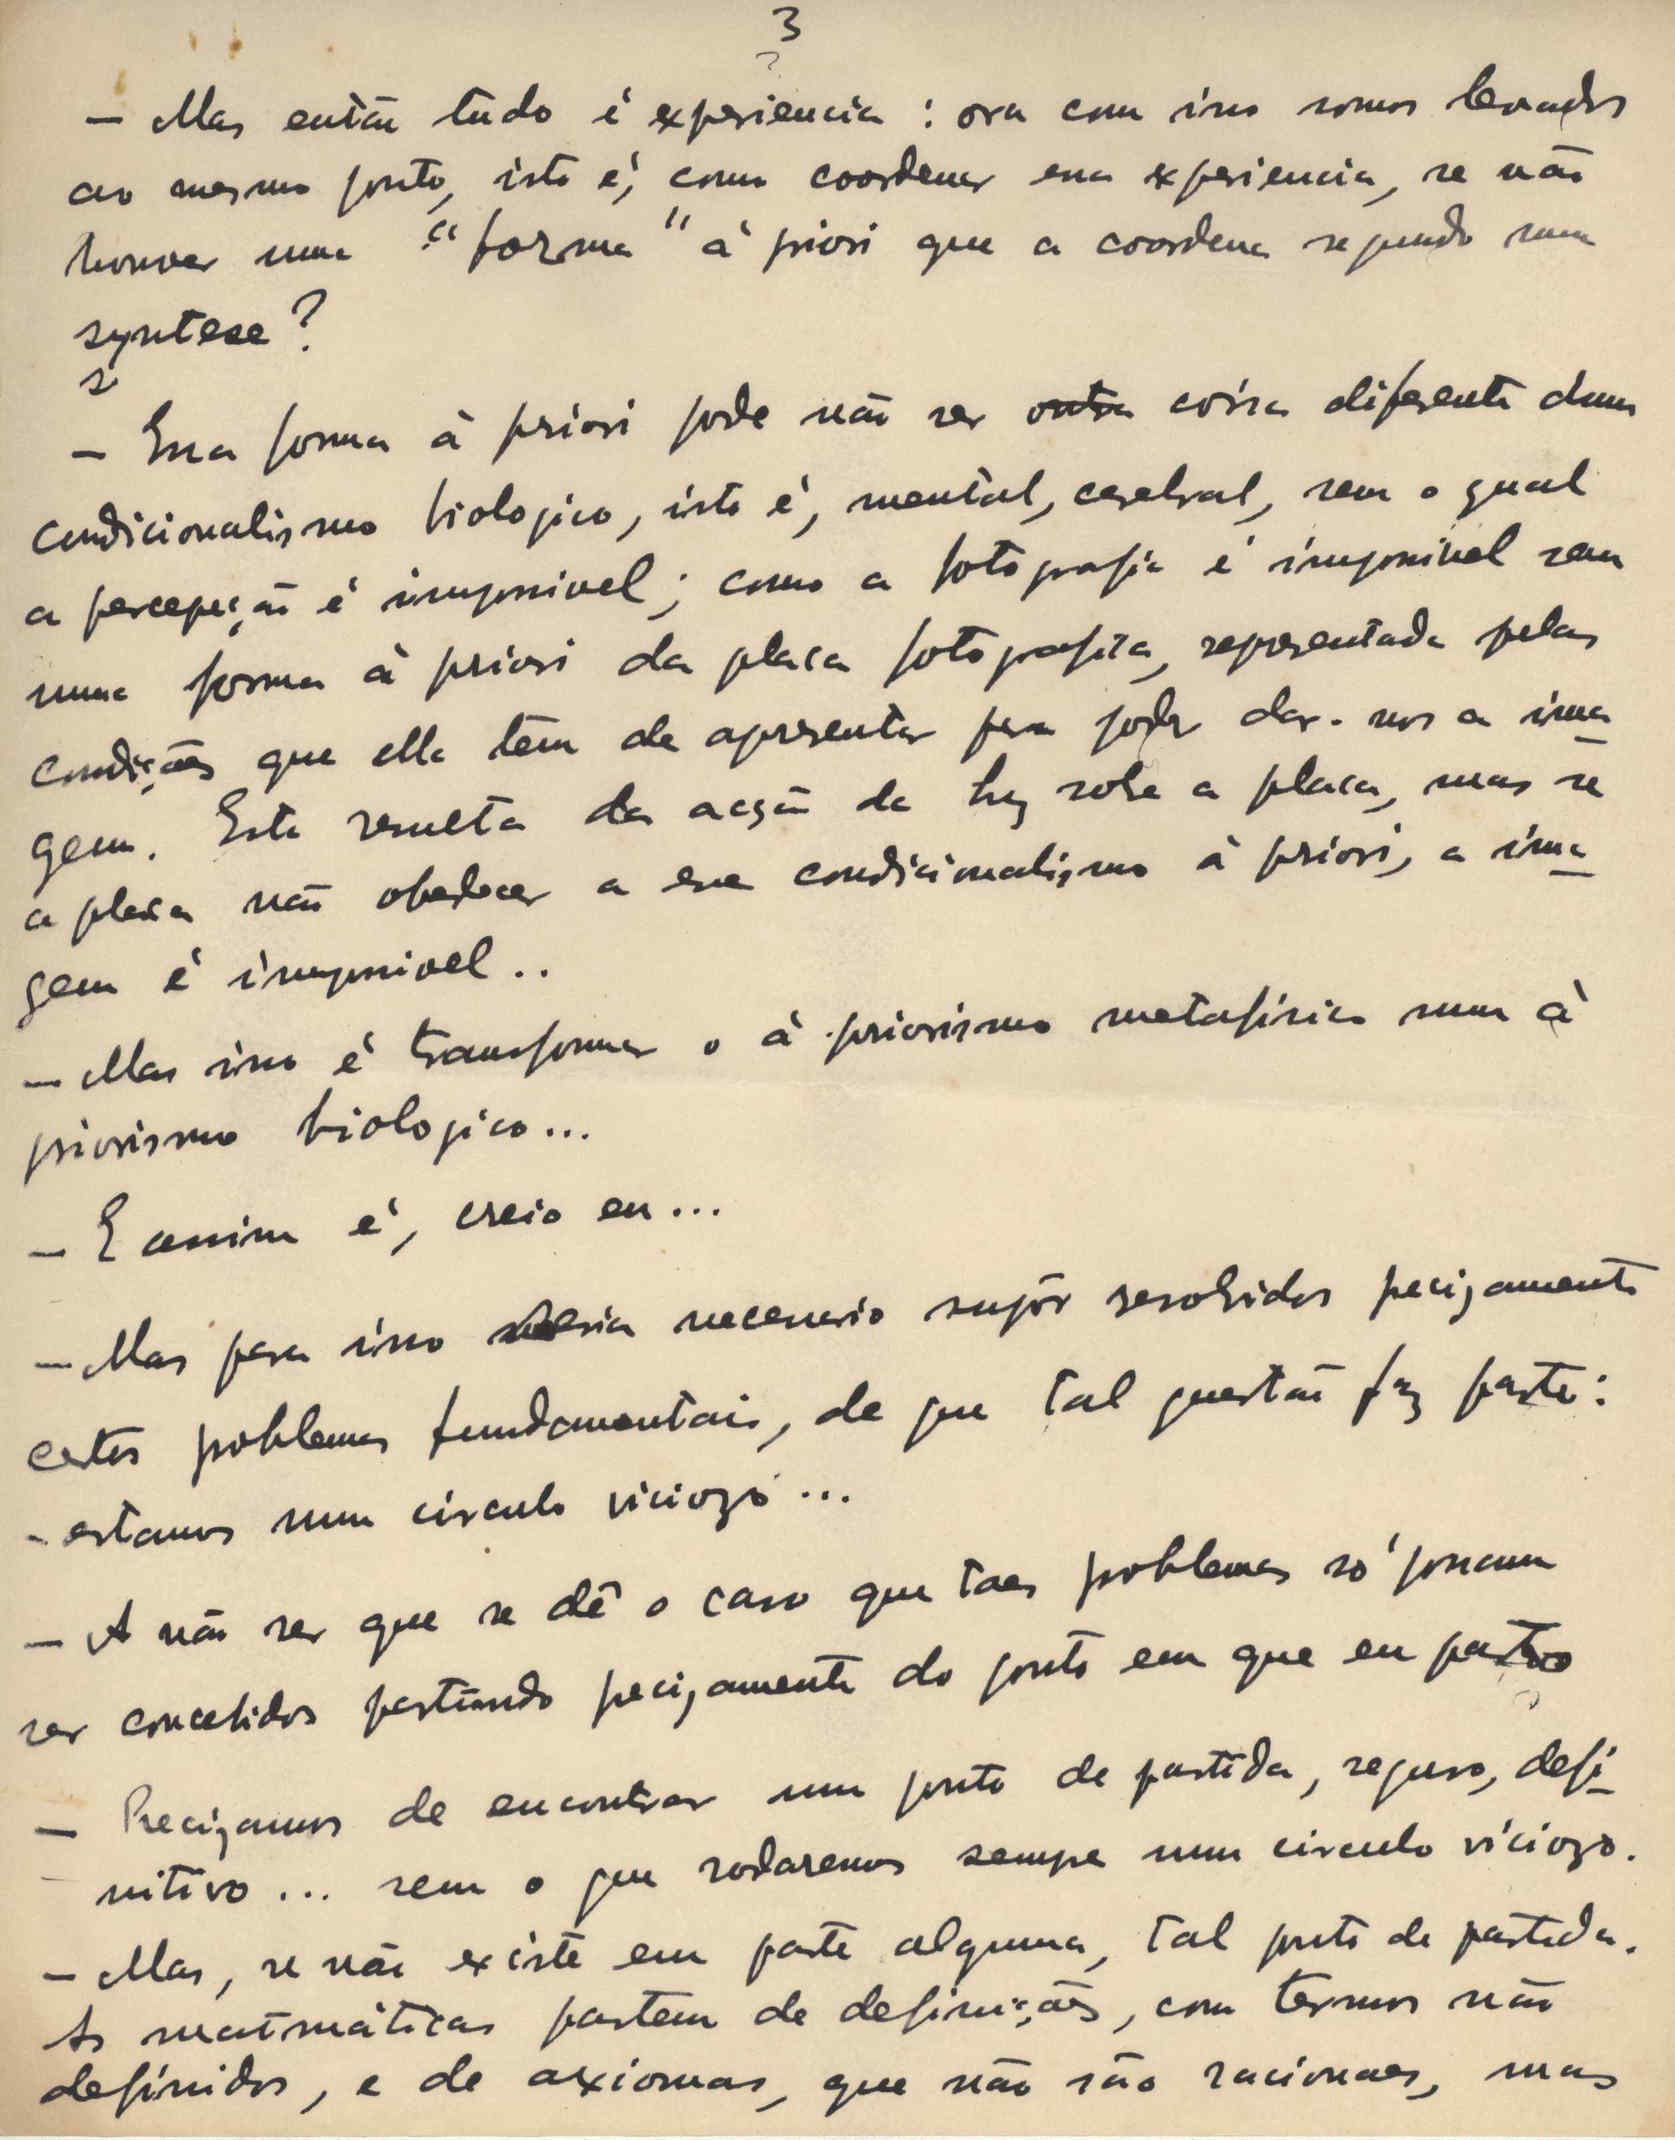 3
— Mas então tudo é experiencia : ora com isso somos levados
ao mesmo ponto, isto é, como coordenar essa experiencia, se não
houver uma "forma" à priori que a coordena segundo uma
syntese?
— Essa forma à priori pode não ser outra coisa diferente dum
condicionalismo biologico, isto é, mental, cerebral, sem o qual
a percepção é impossivel; como a fotografia é impossivel sem
uma forma à priori da placa fotografica, representada pelas
condições que ella tem de apresentar para poder dar-nos a ima
gem. Esta resulta da acção da luz sobre a placa, mas se
a placa não obedecer a esse condicionalismo à priori, a ima
gem é impossivel..
— Mas isso é transformar o à priorismo metafísico num à
priorismo biologico...
— E assim é, creio eu...
— Mas para isso seria necessario supôr resolvidos precizamente
certos problemas fundamentais, de que tal questão faz parte:
- estamos num circulo viciozo...
— A não ser que se dê o caso que taes problemas só possam
ser concebidos partindo precizamente do ponto em que eu parto
— Precizamos de encontrar um ponto de partida, seguro, defi
nitivo... sem o que rodaremos sempre num circulo viciozo.
— Mas, se não existe em parte alguma, tal ponto de partida.
As matmáticas partem de definições, com termos não
definidos, e de axiomas, que não são racionaes, mas